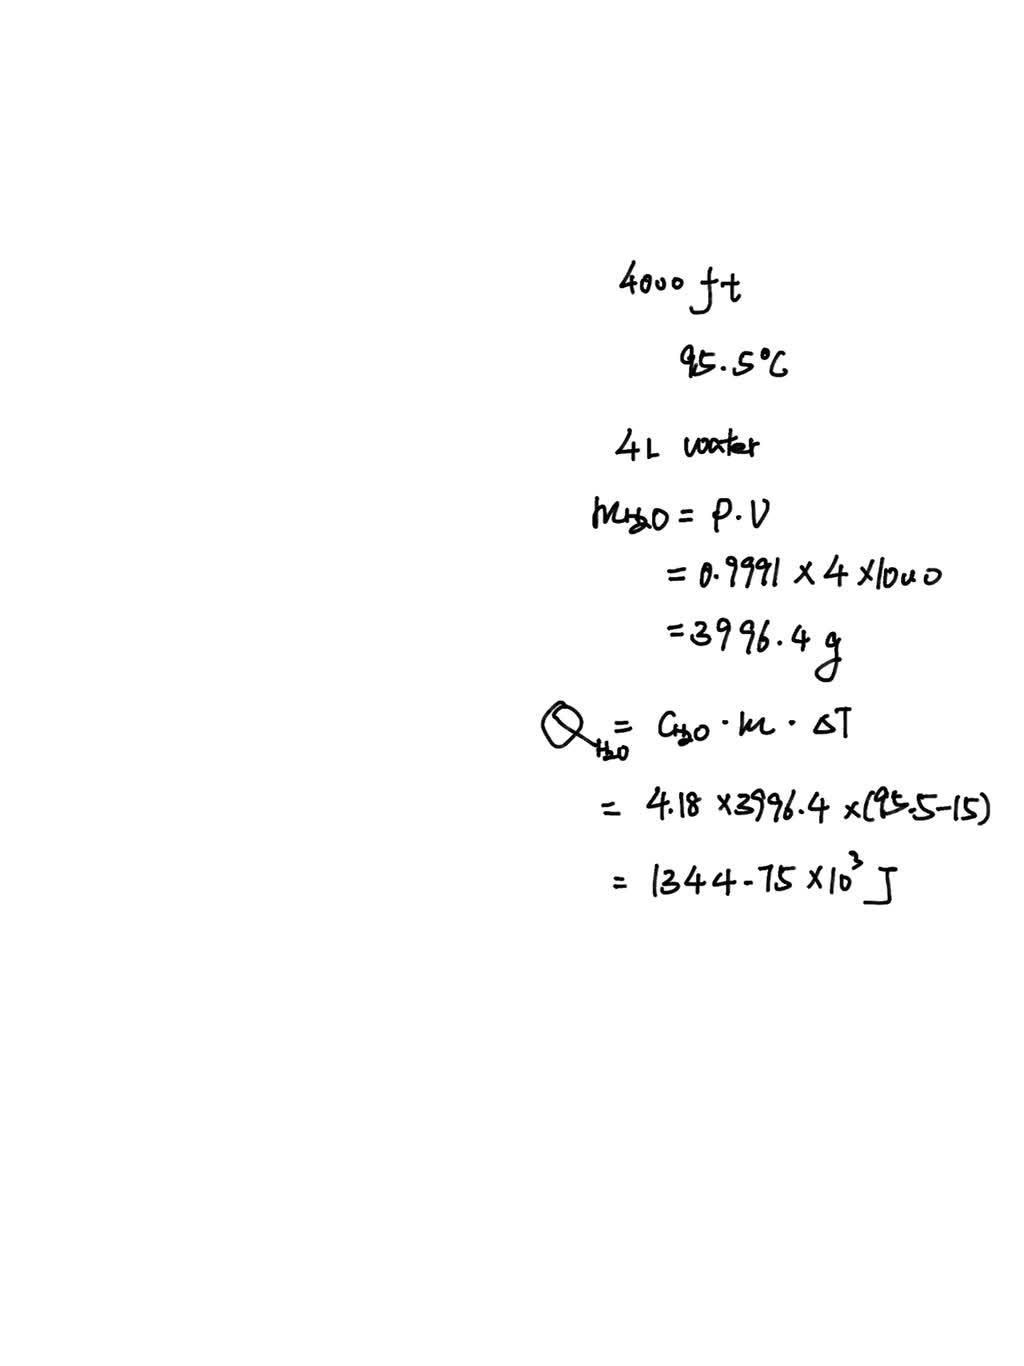 4000 ft
95.5°C
4L water
mH2O = ρ·V
= 0.9991 × 4 × 1000
= 3996.4 g
QH2O = CH2O · m · ΔT
= 4.18 × 3996.4 × (95.5-15)
= 1344.75 × 10³ J